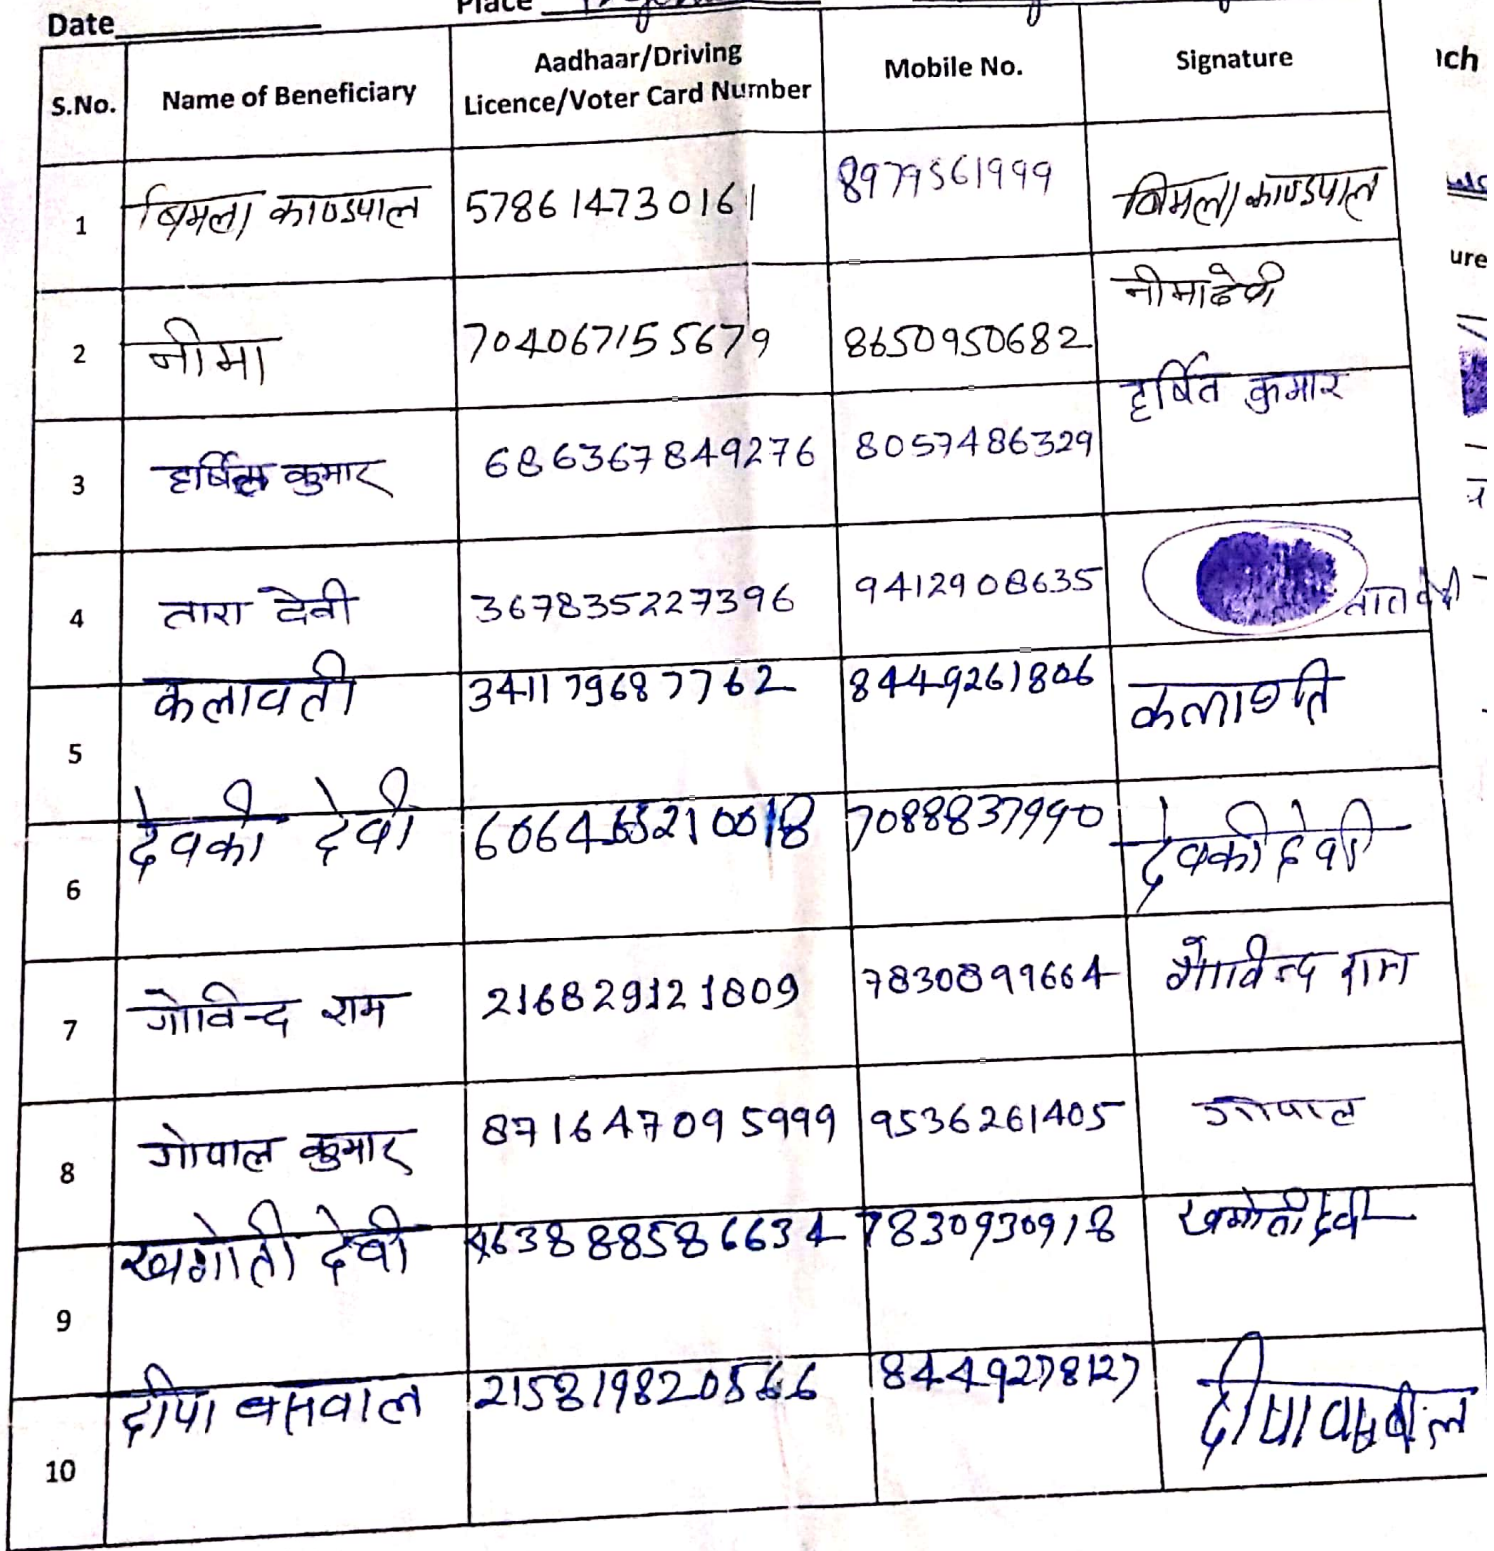 Date Place
S.No. Name of Beneficiary Aadhaar/Driving Licence/Voter Card Number Mobile No. Signature
1 बिमला काण्डपाल 578614730161 8979561999 बिमला काण्डपाल
2 नीमा 704067155679 8650950682 नीमा देवी
3 हर्षित कुमार 686367849276 8057486329 हर्षित कुमार
4 तारा देवी 367835227396 9412908635 तारा देवी
5 कलावती 341179687762 8449261806 कलावति
6 देवकी देवी 7088837990 देवकी देवी
7 गोविन्द राम 216829121809 7830899664 गोविन्द राम
8 गोपाल कुमार 871647095999 9536261405 गोपाल
9 खगोती देवी 463888586634 7830930918 खगोती देवी
10 दीपा बसवाल 215819820566 8449278127 दीपा